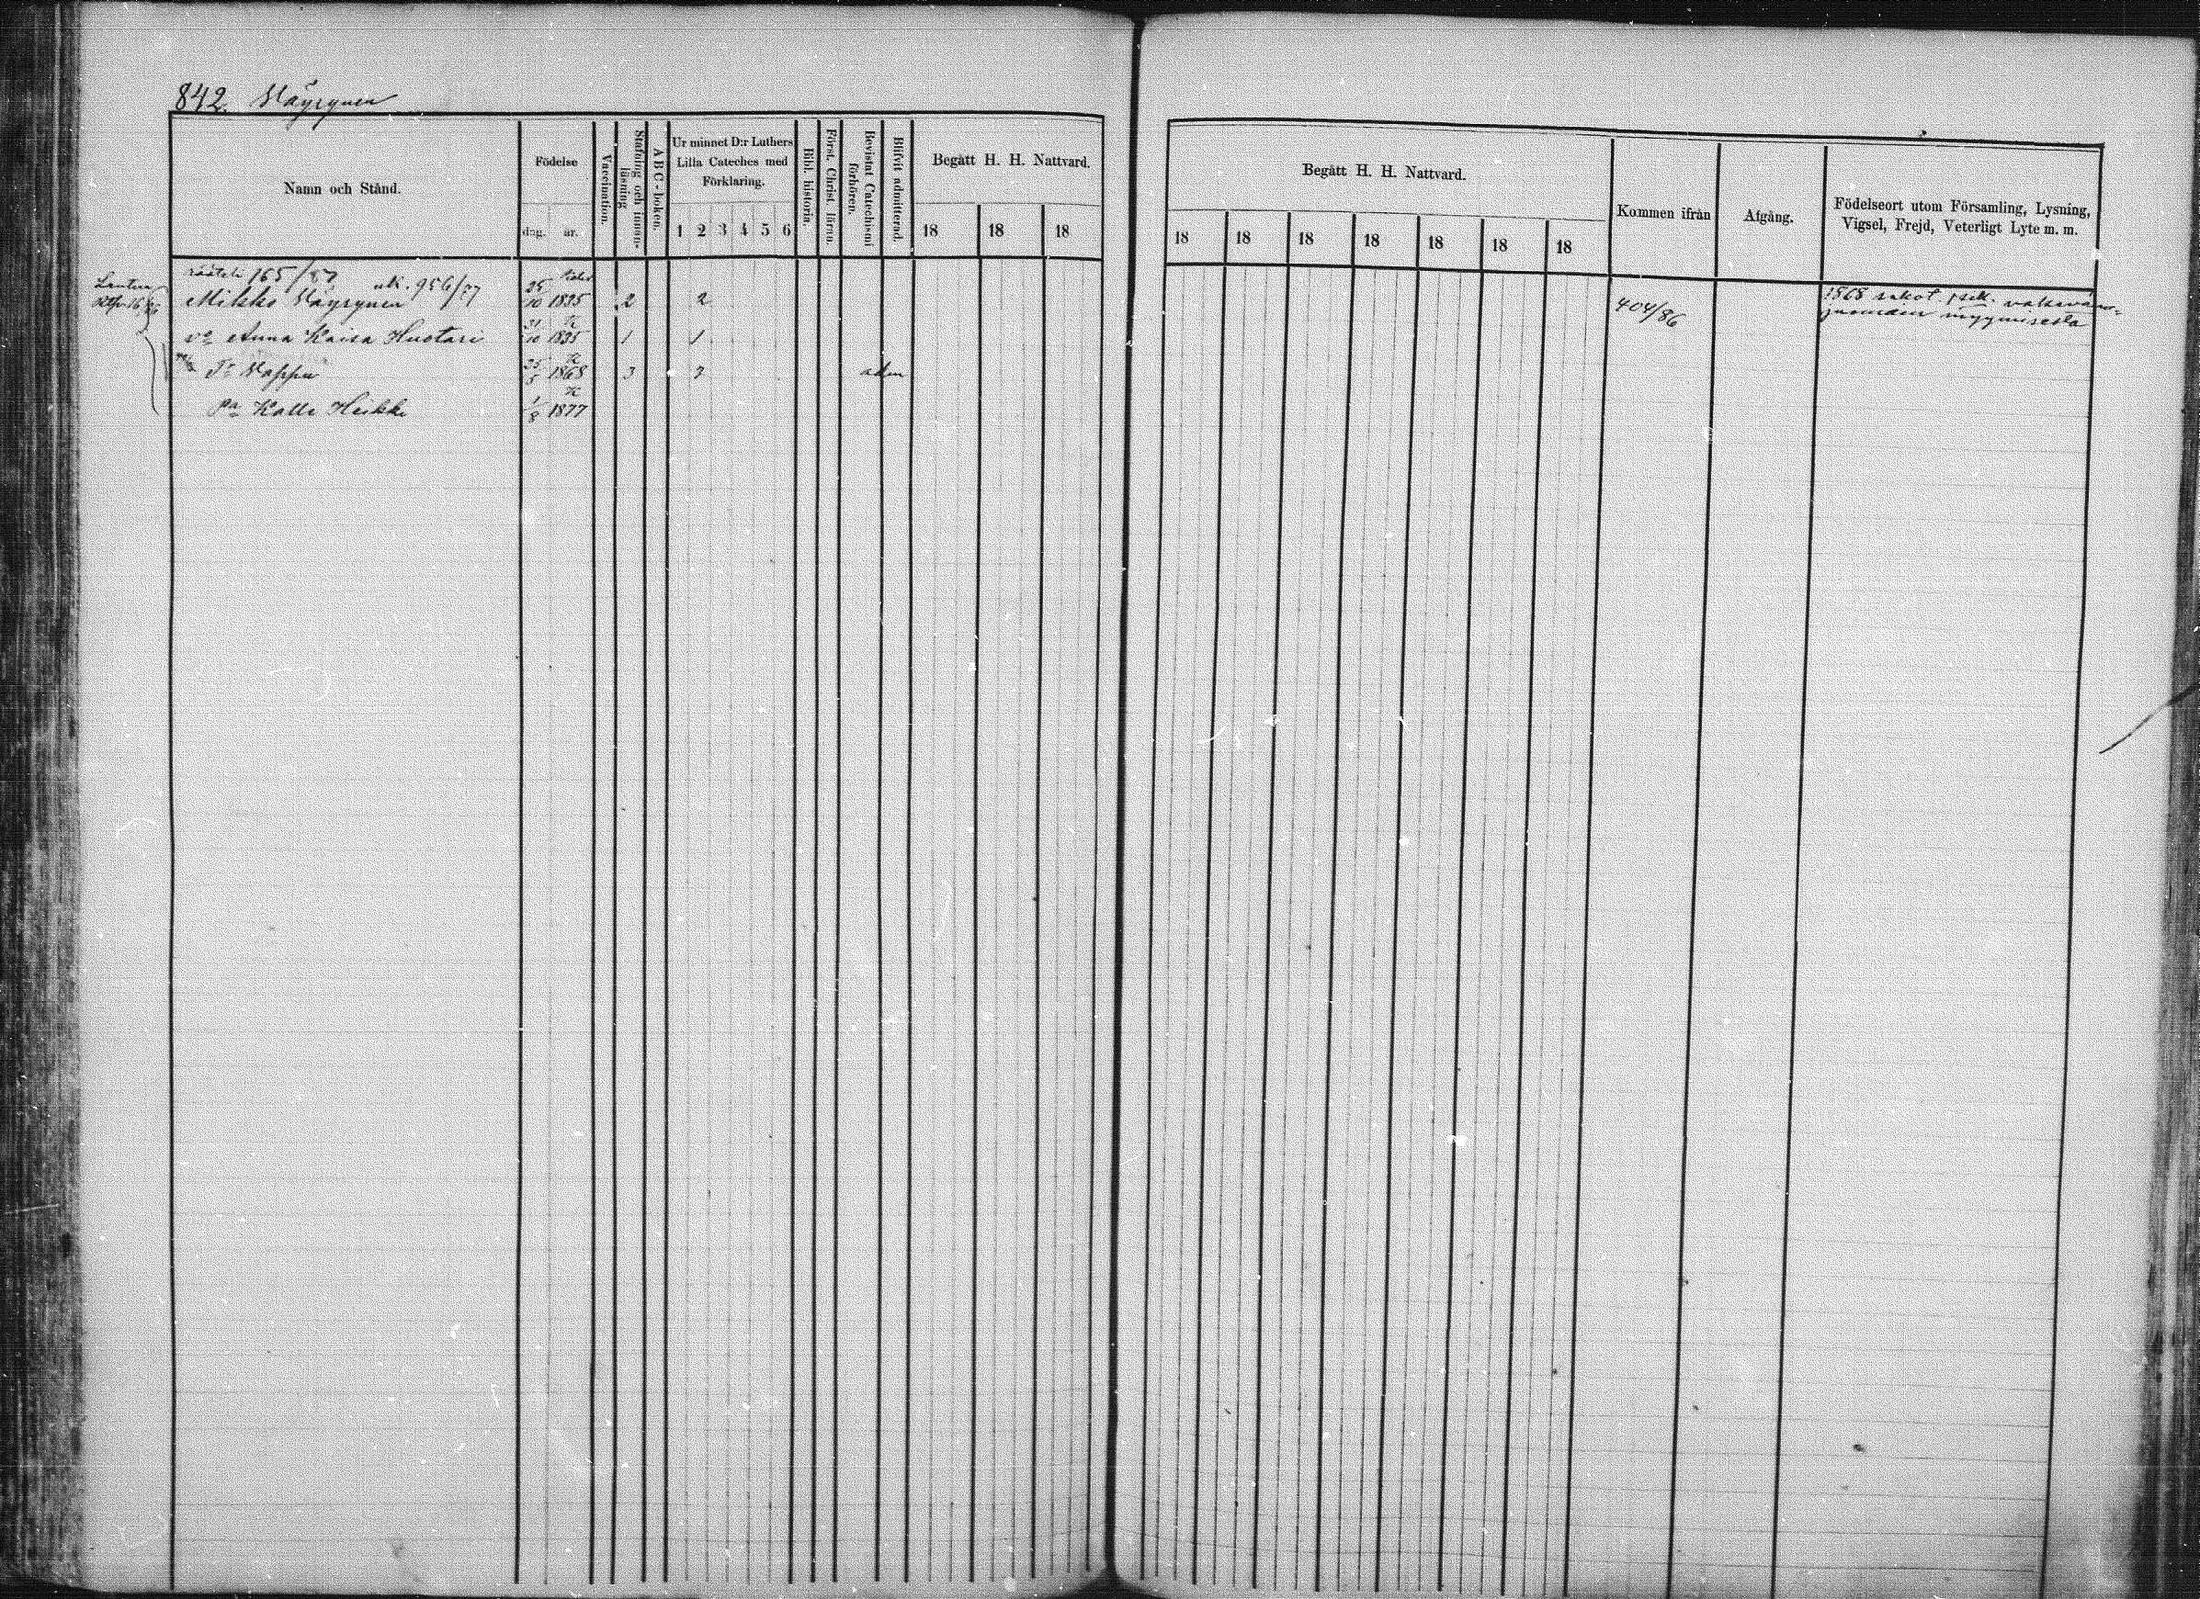 842. Väyrynen
Namn och Stånd.
Födelse
dag. år.
Vaccination.
Stafning och innanläsning
A B C-boken.
Ur minnet D:r Luthers
Lilla Cateches med
Förklaring.
1 2 3 4 5 6
Bibl. historia.
Först. Christ. läran.
Bevistat Catechismi förhören.
Blifvit admitterad.
Begått H. H. Nattvard.
18 18 18
Begått H. H. Nattvard.
18 18 18 18 18 18 18
Kommen ifrån
Afgång.
Födelseort utom Församling, Lysning,
Vigsel, Frejd, Veterligt Lyte m. m.
räätäli 165/87 uK. 956/97
Mikko Väyrynen 25/10 1835 2 2 404/86 1868 sakot.
myymisestä
vo Anna Kaisa Huotari 31/10 1835 1 1
Tr Vappu 25/5 1868 3 3 adm
Pa Kalle Heikki 1/8 1877